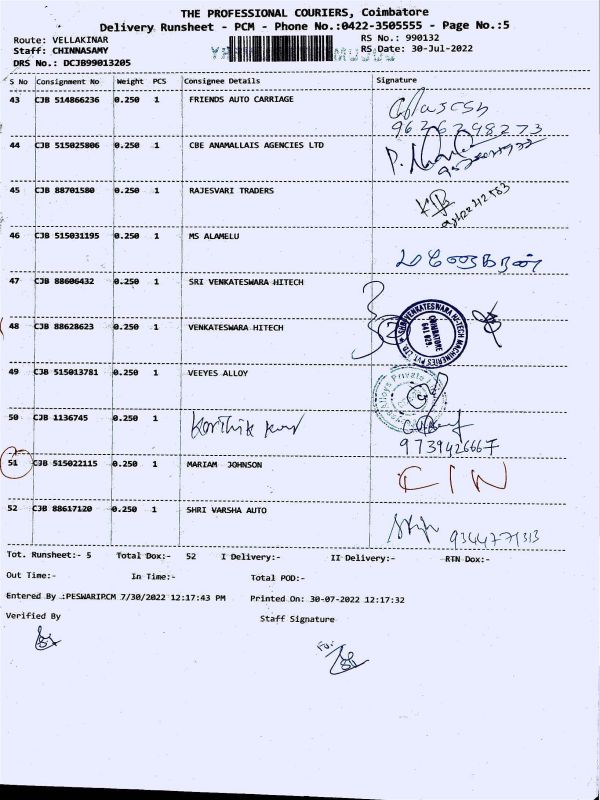 THE PROFESSIONAL COURIERS, Coimbatore
Delivery Runsheet - PCM - Phone No.:0422-3505555 - Page No.:5
Route: VELLAKINAR RS No.: 990132
Staff: CHINNASAMY RS Date: 30-Jul-2022
DRS No.: DCJB99013205
S No Consignment No Weight PCS Consignee Details Signature
43 CJB 514866236 0.250 1 FRIENDS AUTO CARRIAGE
9626298273
44 CJB 515025806 0.250 1 CBE ANAMALLAIS AGENCIES LTD
45 CJB 88701580 0.250 1 RAJESVARI TRADERS
46 CJB 515031195 0.250 1 MS ALAMELU
47 CJB 88606432 0.250 1 SRI VENKATESWARA HITECH
48 CJB 88628623 0.250 1 VENKATESWARA HITECH
SHRI VENKATESWARA HI-TECH MACHINERIES PVT. LTD.
COIMBATORE
641 029.
49 CJB 515013781 0.250 1 VEEYES ALLOY
50 CJB 1136745 0.250 1 Karthik
9739426667
51 CJB 515022115 0.250 1 MARIAM JOHNSON CIN
52 CJB 88617120 0.250 1 SHRI VARSHA AUTO 9364771313
Tot. Runsheet:- 5 Total Dox:- 52 I Delivery:- II Delivery:- RTN Dox:-
Out Time:- In Time:- Total POD:-
Entered By :PESWARIPCM 7/30/2022 12:17:43 PM Printed On: 30-07-2022 12:17:32
Verified By Staff Signature
For